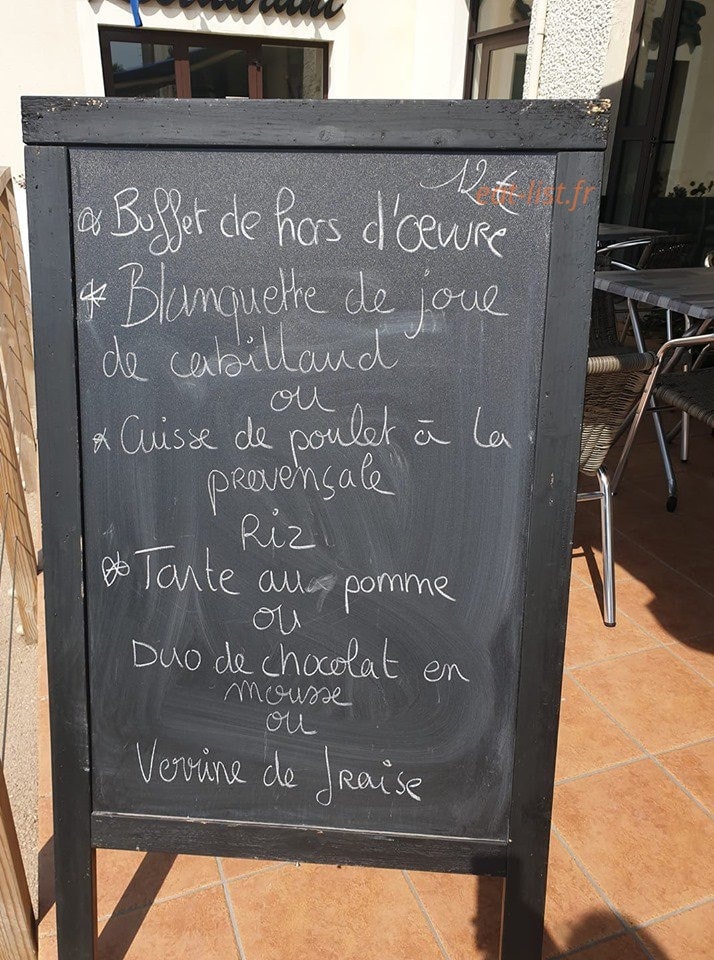 12 €
eat-list.fr
Buffet de hors d'œuvre
Blanquette de joue
de cabillaud
ou
Cuisse de poulet à la
provençale
Riz
Tarte au pomme
ou
Duo de chocolat en
mousse
ou
Verrine de fraise